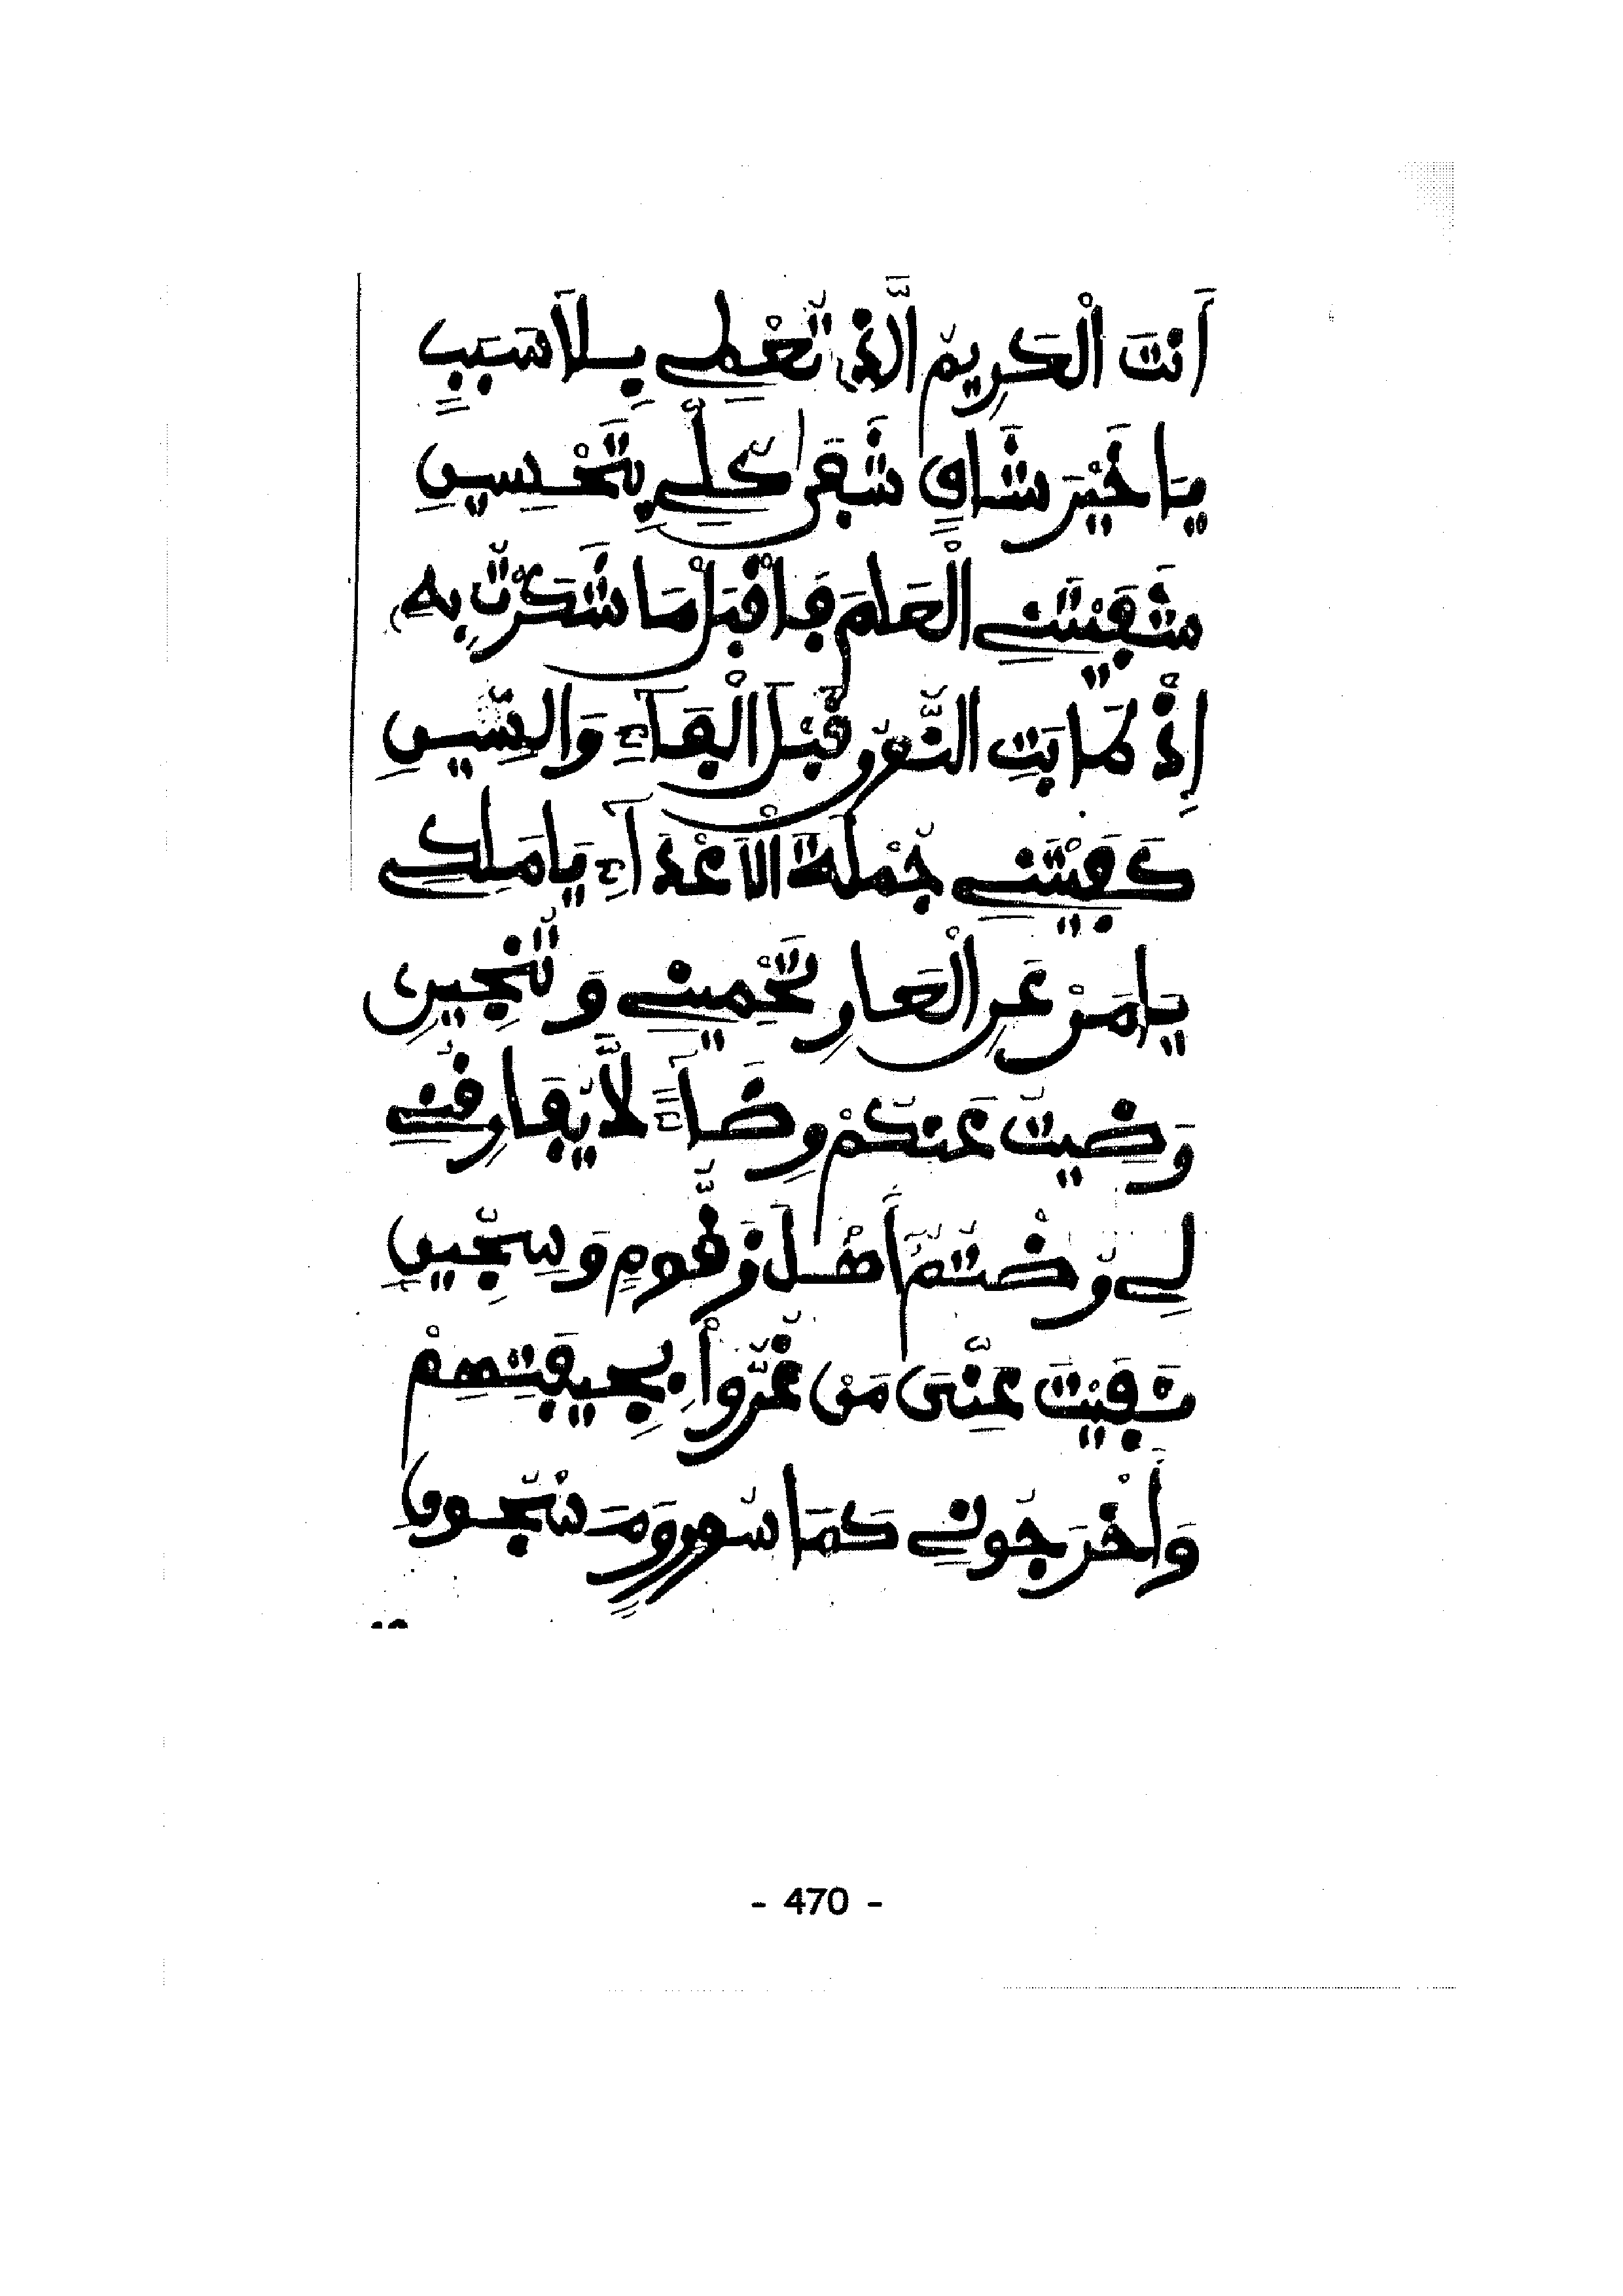 أَنْتَ الْكَرِيمُ الَّذِي تُعْطِي بِلَا سَبَبٍ
يَا خَيْرَ شَافٍ شَفَى كُلِّي بِتَحْسِينِ
شَفَيْتَنِي الْعَامَ فَاقْبَلْ مَا شَكَرْتُ بِهِ
إِذْ طَابَتِ النَّفْسُ قَبْلَ الْفَاءِ وَالسِّينِ
كَفَيْتَنِي جُمْلَةَ الْأَعْدَاءِ يَا مَلِكِي
يَا مَنْ عَنِ الْعَارِ تَحْمِينِي وَتُنْجِينِ
رَضِيتُ عَنكُمْ رِضَاءً لَّا يُفَارِقُنِي
لِي رُضْتُمُ أَهْلَ زَقُّومٍ وَسِجِّينِ
نَفَيْتَ عَنِّى مَنْ غُرُّواْ بِجِيفَتِهِمْ
وَأَخْرَجُونِي كَمَا